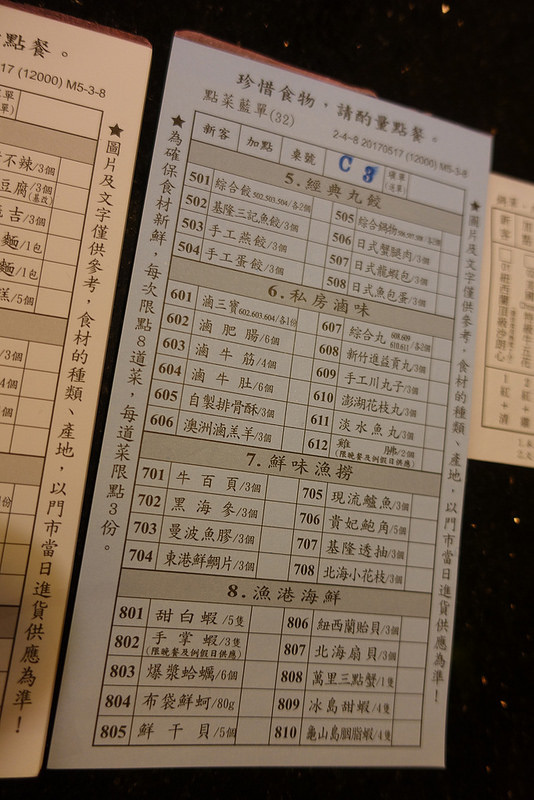 點餐。
17 (12000) M5-3-8
不辣/3個
豆腐/3個
吉/3個
麵/1包
麵/1包
/5個
★圖片及文字僅供參考，食材的種類、產地，以門市當日進貨供應為準！
珍惜食物，請酌量點餐。
點菜藍單(32)
2-4-8 20170517 (12000) M5-3-8
★為確保食材新鮮，每次限點8道菜，每道菜限點3份。
新客 加點 桌號 C 3
5.經典丸餃
501 綜合餃502.503.504/各2個
502 基隆三記魚餃/3個
503 手工燕餃/3個
504 手工蛋餃/3個
505 綜合鍋物/各2個
506 日式蟹腿肉/3個
507 日式龍蝦包/3個
508 日式魚包蛋/3個
6.私房滷味
601 滷三寶602.603.604/各1份
602 滷肥腸/6個
603 滷牛筋/4個
604 滷牛肚/6個
605 自製排骨酥/3個
606 澳洲滷羔羊/3個
607 綜合丸608.609 610.611/各2個
608 新竹進益貢丸/3個
609 手工川丸子/3個
610 澎湖花枝丸/3個
611 淡水魚丸/3個
612 雞胇/2個
(限晚餐及例假日供應)
7.鮮味漁撈
701 牛百頁/3個
702 黑海參/3個
703 曼波魚膠/3個
704 東港鮮鯛片/3個
705 現流鱸魚/3個
706 貴妃鮑角/5個
707 基隆透抽/3個
708 北海小花枝/3個
8.漁港海鮮
801 甜白蝦/5隻
802 手掌蝦/3隻
(限晚餐及例假日供應)
803 爆漿蛤蠣/6個
804 布袋鮮蚵/80g
805 鮮干貝/5個
806 紐西蘭貽貝/3個
807 北海扇貝/3個
808 萬里三點蟹/1隻
809 冰島甜蝦/4隻
810 龜山島胭脂蝦/4隻
★圖片及文字僅供參考，食材的種類、產地，以門市當日進貨供應為準！
新客